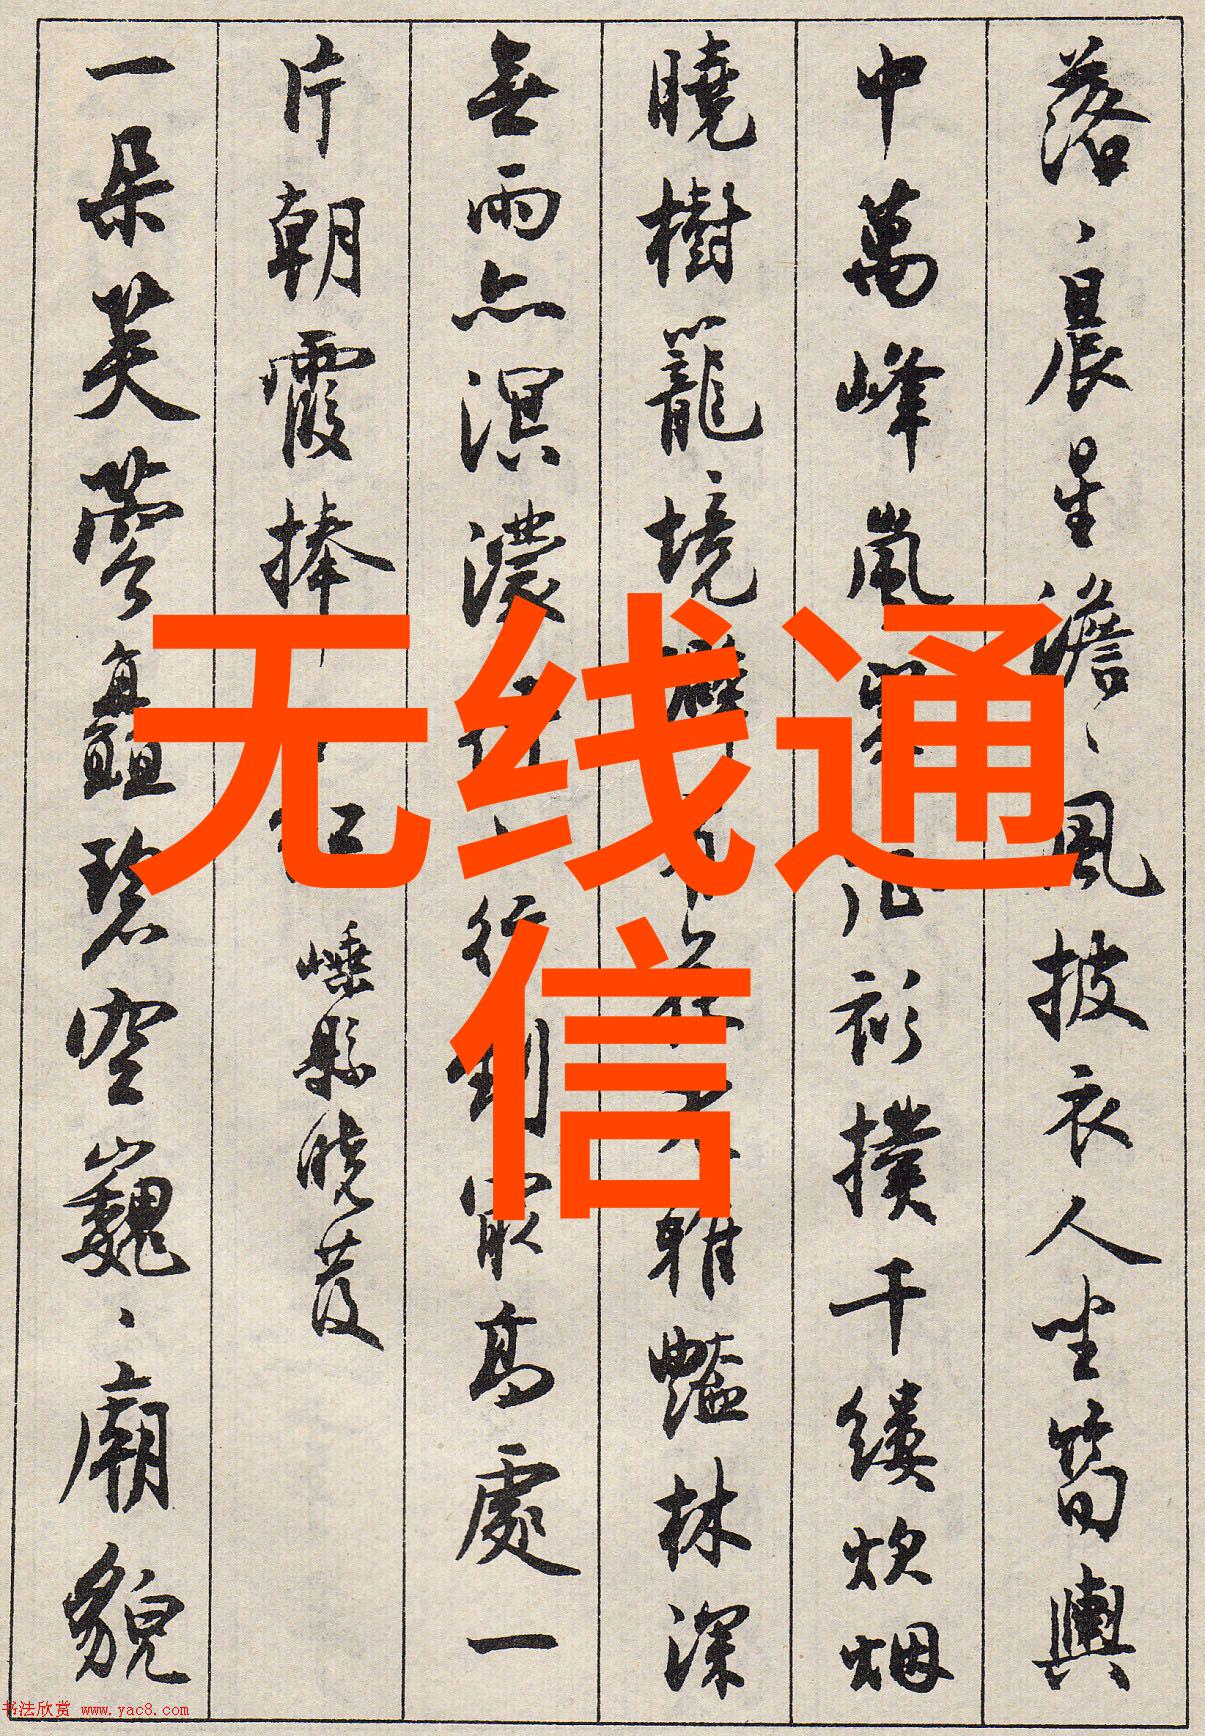 落、晨星澹、風披衣人坐筍輿
中萬峰嵐衫撲千縷炊烟
曉樹籠、境僻稚豔林深
無雨亦溟濃行到最高處一
片朝霞捧紅 嵊縣曉發
一朵芙蓉矗碧空巍、廟貌
无线通
信
书法欣赏 www.yac8.com